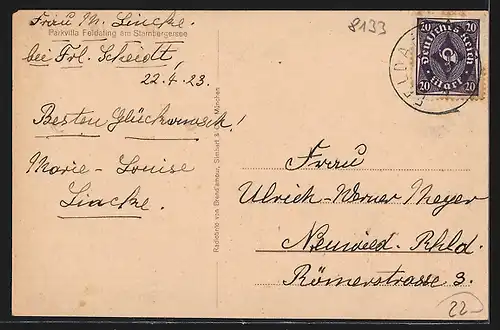 Frau M. Lincke.
Parkvilla Feldafing am Starnbergersee
bei Frl. Scheidt,
22.4.23.
Besten Glückwunsch!
Marie-Louise
Lincke.
Radierung von Brend'amour, Simhart & Co., München
8133
FELDA
20 20
Deutsches Reich
20 Mark 20
Frau
Ulrich-Werner Meyer
Neuwied. Rhld.
Römerstrasse 3.
22-